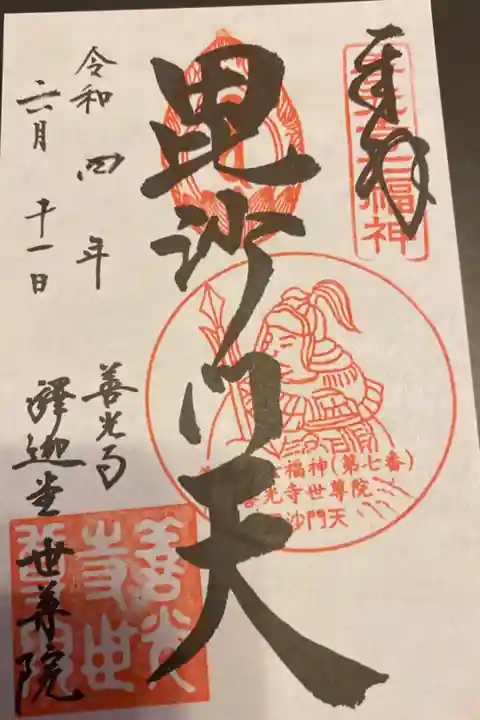 奉拝
七福神
毘沙門天
七福神(第七番)
善光寺世尊院
毘沙門天
令和四年
六月十一日
善光寺
釋迦堂世尊院
善光
寺世
尊院